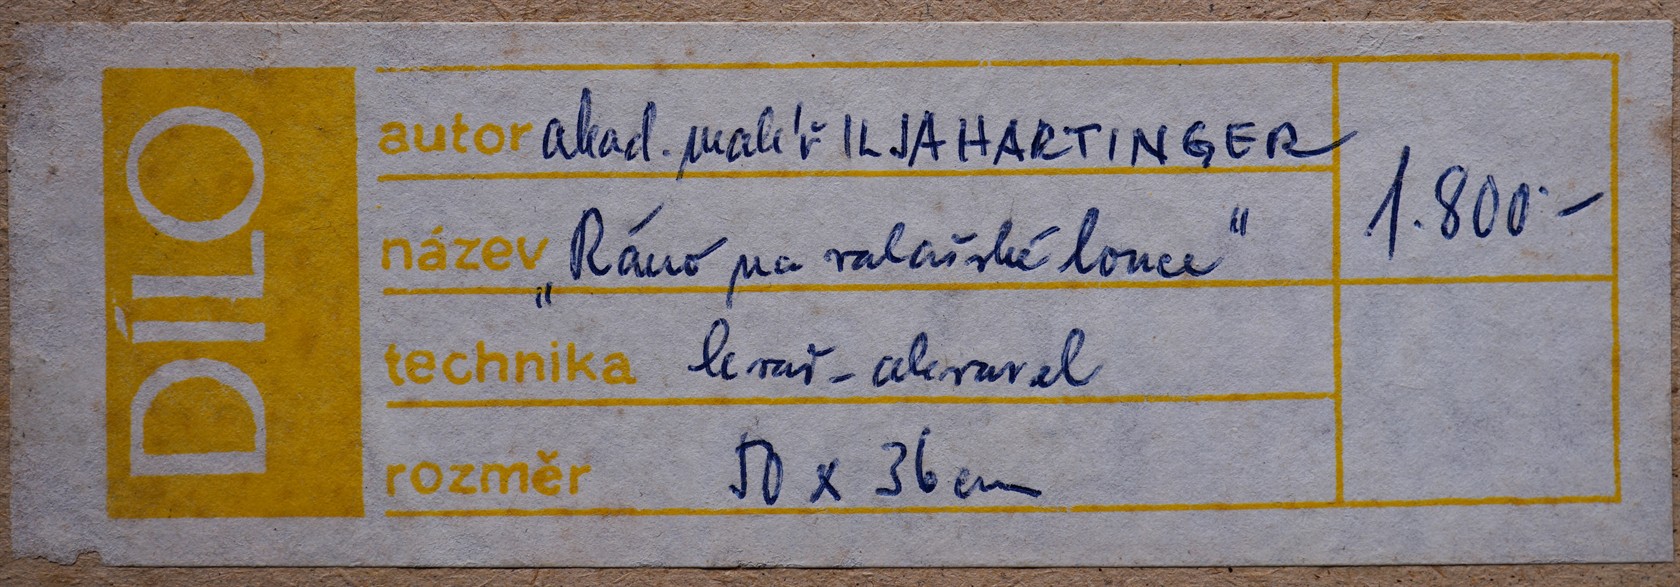 DÍLO
autor akad. malíř ILJA HARTINGER
název „Ráno na valašské louce"
technika kvaš - akvarel
rozměr 50 x 36 cm
1.800.-